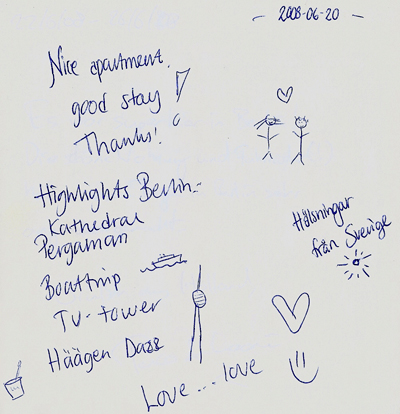 - 2008-06-20 -
Nice apartment.
good stay !
Thanks!
Highlights Berlin:-
Kathedral
Pergaman
Boattrip
TV-tower
Häägen Dazs
Hälsningar
från Sverige
Love... love